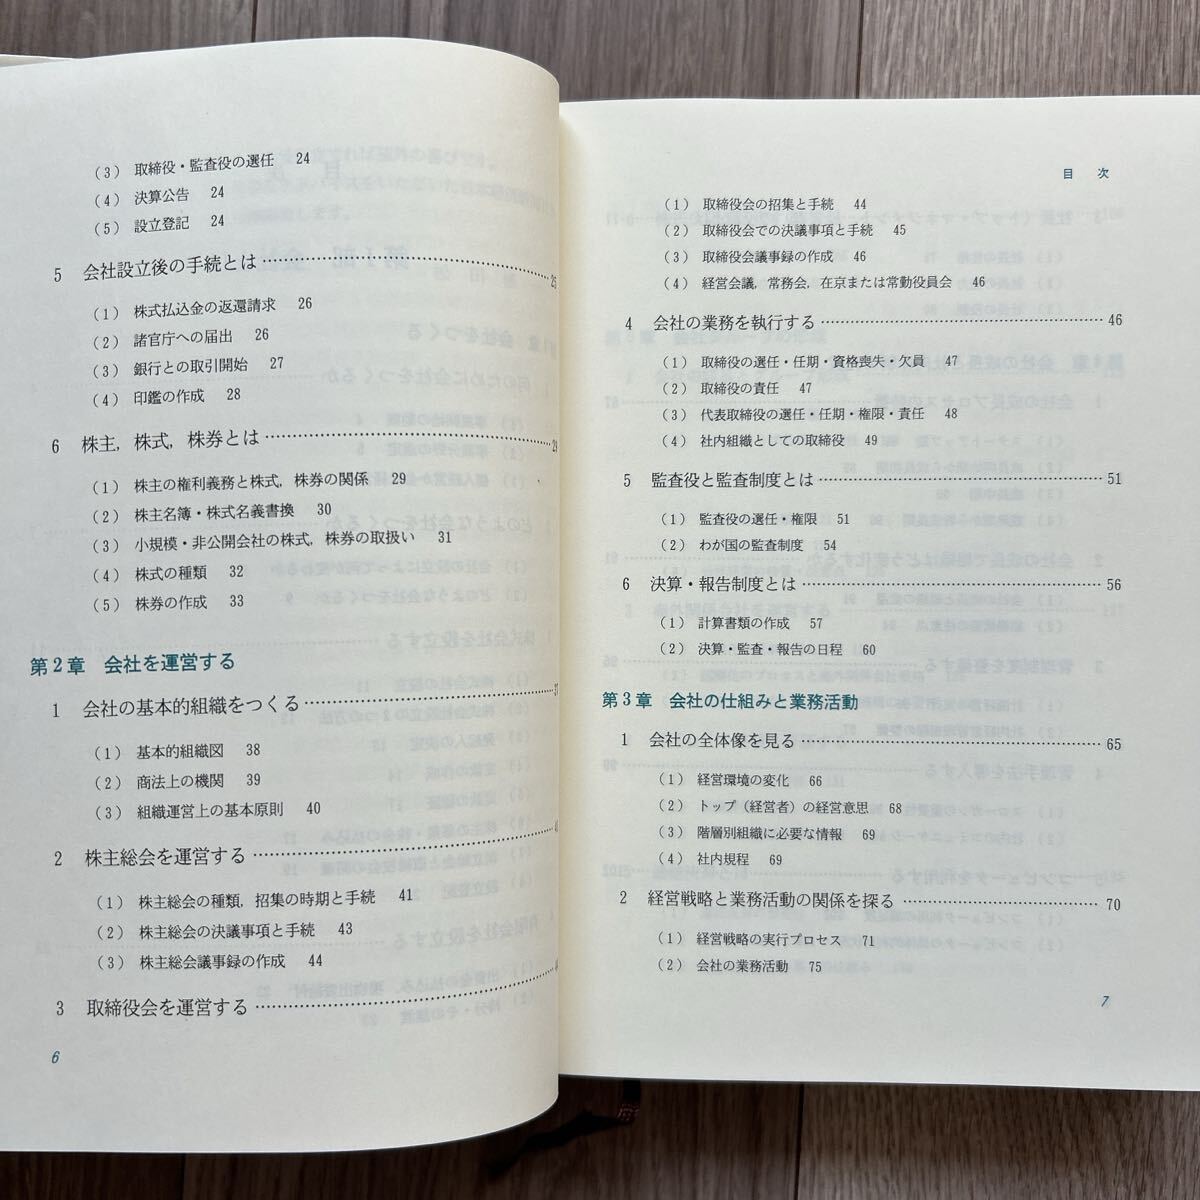 (3) 取締役・監査役の選任 24
(4) 決算公告 24
(5) 設立登記 24
5 会社設立後の手続とは 25
(1) 株式払込金の返還請求 26
(2) 諸官庁への届出 26
(3) 銀行との取引開始 27
(4) 印鑑の作成 28
6 株主，株式，株券とは 29
(1) 株主の権利義務と株式，株券の関係 29
(2) 株主名簿・株式名義書換 30
(3) 小規模・非公開会社の株式，株券の取扱い 31
(4) 株式の種類 32
(5) 株券の作成 33
第2章 会社を運営する
1 会社の基本的組織をつくる 37
(1) 基本的組織図 38
(2) 商法上の機関 39
(3) 組織運営上の基本原則 40
2 株主総会を運営する
(1) 株主総会の種類，招集の時期と手続 41
(2) 株主総会の決議事項と手続 43
(3) 株主総会議事録の作成 44
3 取締役会を運営する
6
目 次
(1) 取締役会の招集と手続 44
(2) 取締役会での決議事項と手続 45
(3) 取締役会議事録の作成 46
(4) 経営会議，常務会，在京または常勤役員会 46
4 会社の業務を執行する 46
(1) 取締役の選任・任期・資格喪失・欠員 47
(2) 取締役の責任 47
(3) 代表取締役の選任・任期・権限・責任 48
(4) 社内組織としての取締役 49
5 監査役と監査制度とは 51
(1) 監査役の選任・権限 51
(2) わが国の監査制度 54
6 決算・報告制度とは 56
(1) 計算書類の作成 57
(2) 決算・監査・報告の日程 60
第3章 会社の仕組みと業務活動
1 会社の全体像を見る 65
(1) 経営環境の変化 66
(2) トップ（経営者）の経営意思 68
(3) 階層別組織に必要な情報 69
(4) 社内規程 69
2 経営戦略と業務活動の関係を探る 70
(1) 経営戦略の実行プロセス 71
(2) 会社の業務活動 75
7